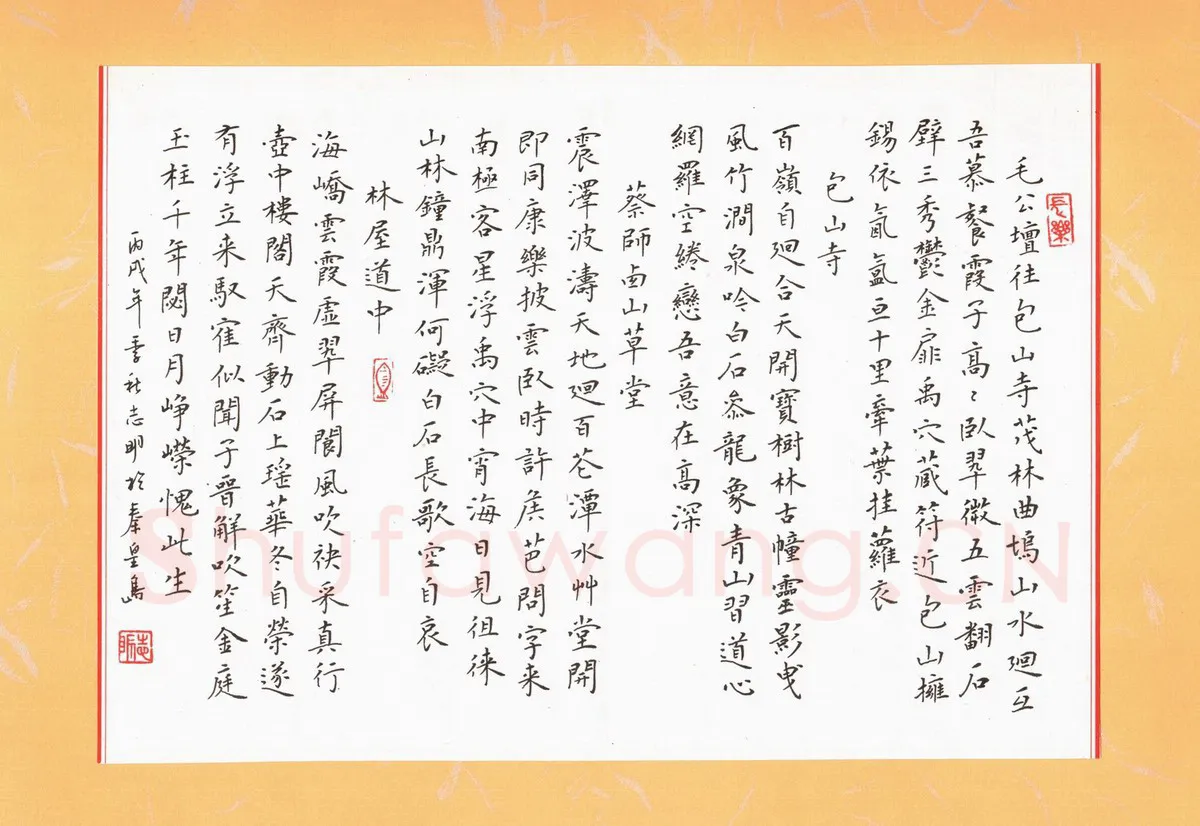 毛公壇往包山寺茂林曲塢山水廻互
吾慕餐霞子高〻臥翠微五雲翻石
壁三秀鬱金扉禹穴蔵符近包山擁
錫依氤氳亘十里牽葉挂蘿衣
包山寺
百嶺自廻合天開寶樹林古幢靈影曳
風竹澗泉吟白石叅龍象青山習道心
網羅空綣戀吾意在高深
蔡師卤山草堂
震澤波濤天地廻百花潭水艸堂開
即同康樂披雲臥時許侯芭問字来
南極客星浮禹穴中宵海日見徂徠
山林鐘鼎渾何礙白石長歌空自哀
林屋道中
海嶠雲霞虛翠屏閬風吹袂采真行
壺中樓閣天齊動石上瑶華冬自榮遂
有浮立来馭寉似聞子晉解吹笙金庭
玉柱千年閟日月崢嶸愧此生
丙戌年季秋志明於秦皇島
長樂
Shufawang.CN